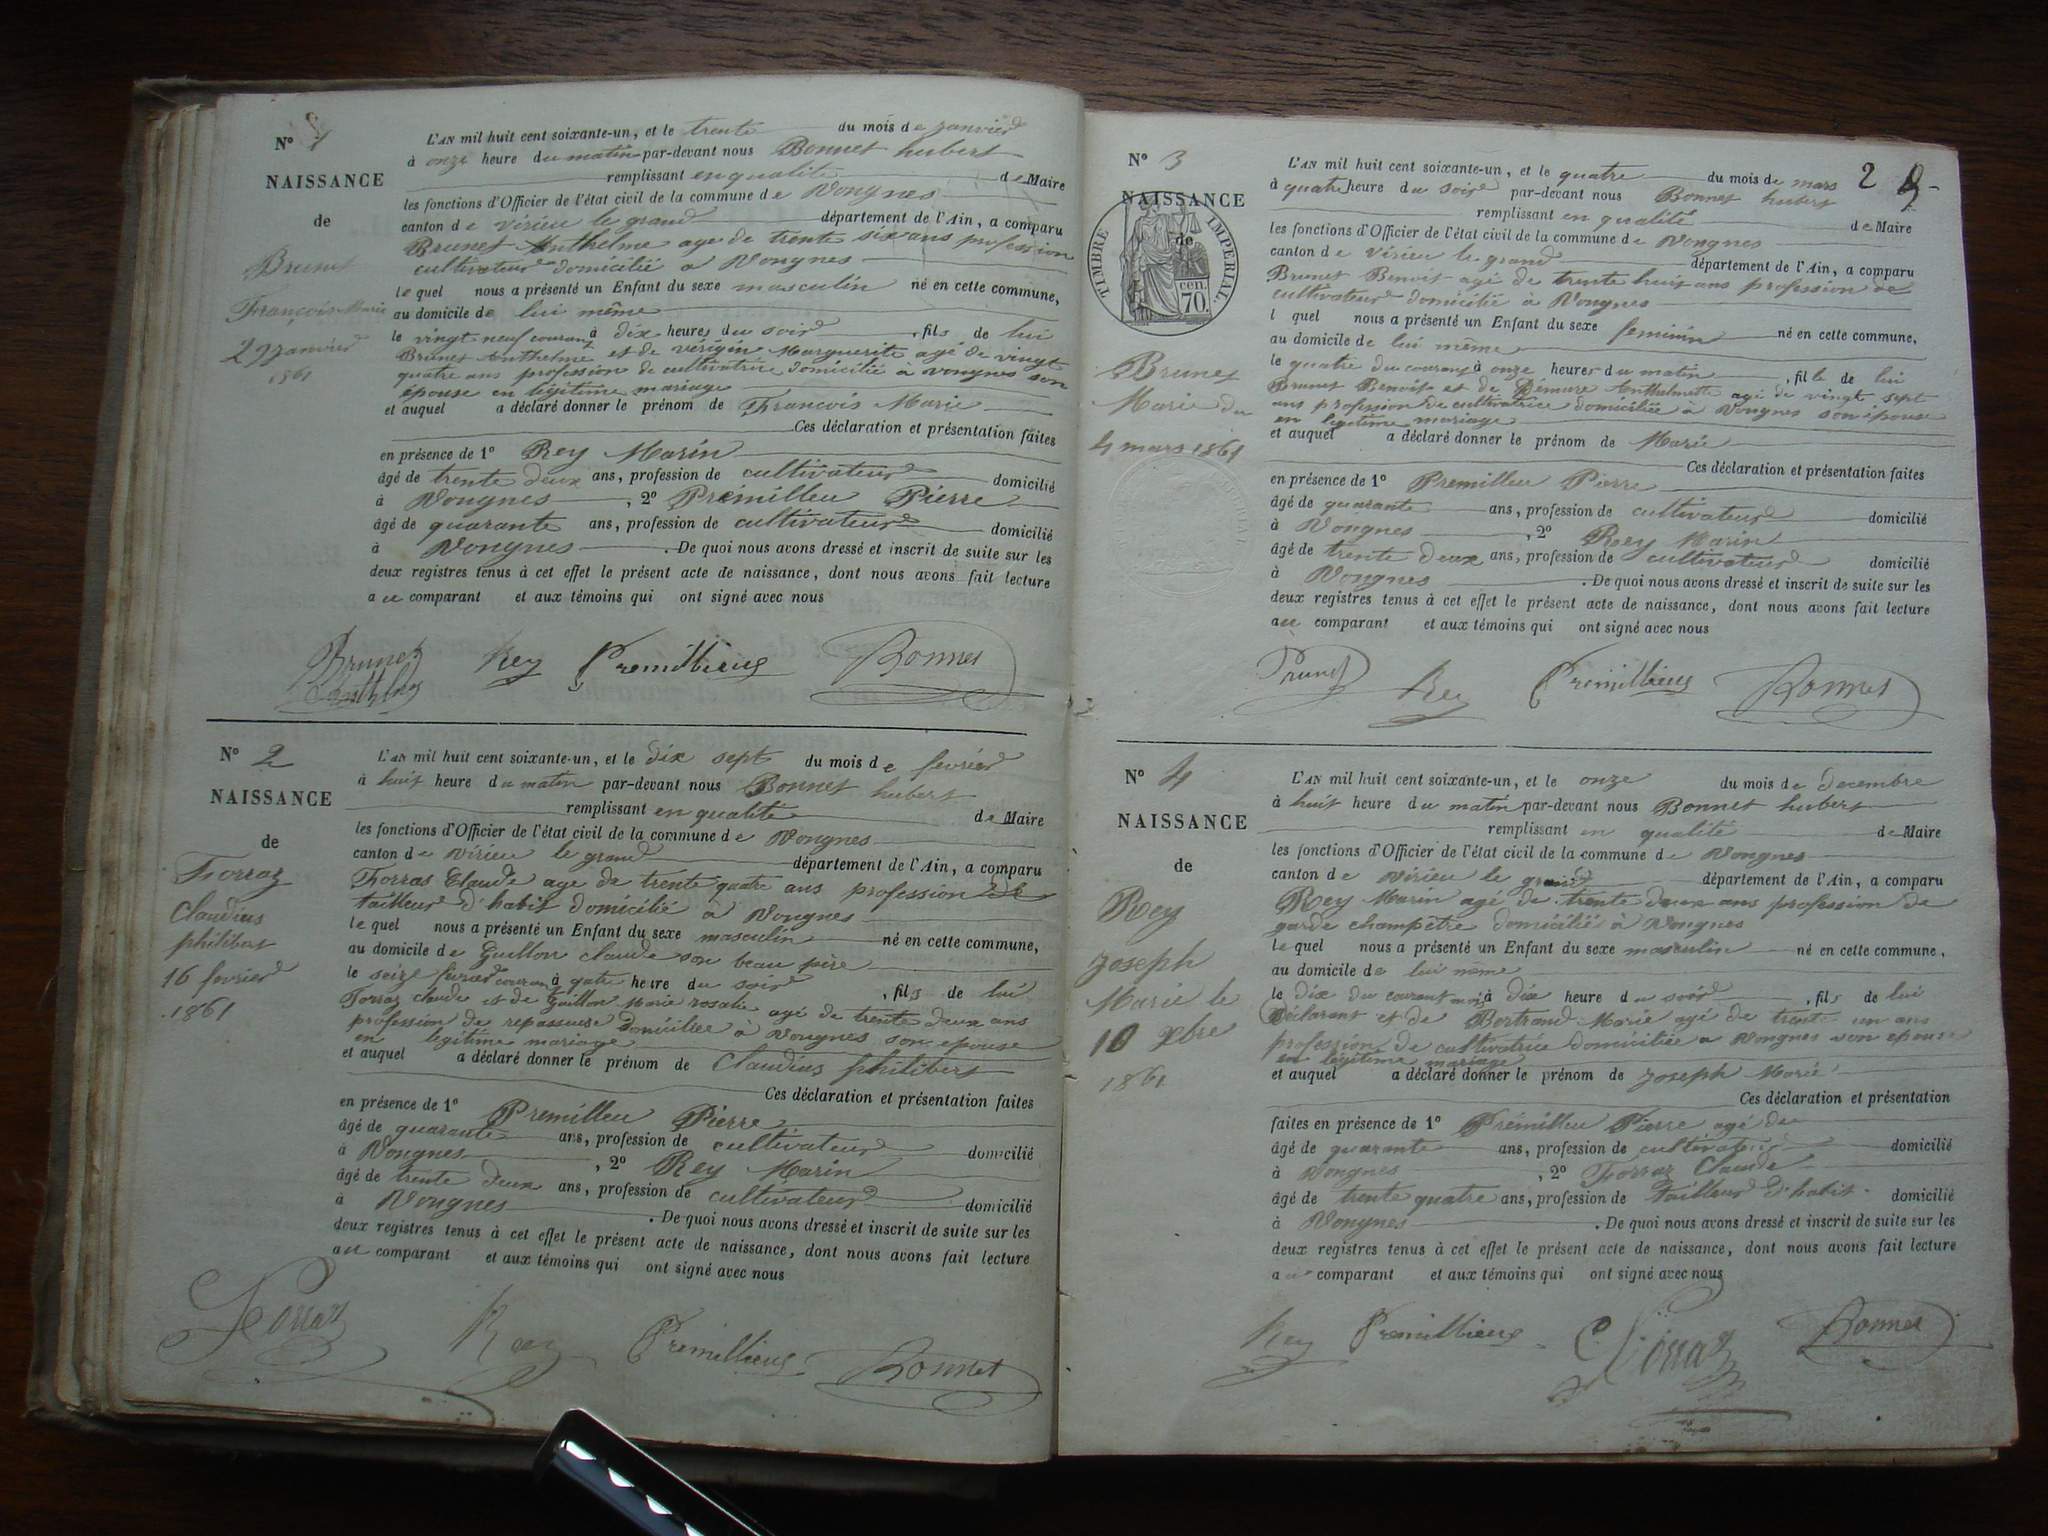 N° 1
NAISSANCE
de
Brunet
François Marie
29 janvier
1861
L'AN mil huit cent soixante-un, et le trente du mois de janvier
à onze heure du matin par-devant nous Bonnet hubert
remplissant en qualité de Maire
les fonctions d'Officier de l'état civil de la commune de Vongnes
canton de Virieu le grand département de l'Ain, a comparu
Brunet Anthelme age de trente six ans profession
cultivateur domicilié à Vongnes
lequel nous a présenté un Enfant du sexe masculin né en cette commune,
au domicile de lui même
le vingt neuf courant à dix heures du soir, fils de lui
Brunet Anthelme et de vérigin Marguerite agé de vingt
quatre ans profession de cultivatrice domicilié à vongnes son
épouse en légitime mariage
et auquel a déclaré donner le prénom de François Marie
Ces déclaration et présentation faites
en présence de 1° Rey Marin
âgé de trente deux ans, profession de cultivateur domicilié
à Vongnes, 2° Prémillieu Pierre
âgé de quarante ans, profession de cultivateur domicilié
à Vongnes. De quoi nous avons dressé et inscrit de suite sur les
deux registres tenus à cet effet le présent acte de naissance, dont nous avons fait lecture
au comparant et aux témoins qui ont signé avec nous
Brunet Rey Premillieux Bonnet
N° 2
NAISSANCE
de
Forraz
Claudius
philibert
16 fevrier
1861
L'AN mil huit cent soixante-un, et le dix sept du mois de fevrier
à huit heure du matin par-devant nous Bonnet hubert
remplissant en qualité de Maire
les fonctions d'Officier de l'état civil de la commune de Vongnes
canton de Virieu le grand département de l'Ain, a comparu
Forras Claude age de trente quatre ans profession de
tailleur d'habit domicilié à Vongnes
lequel nous a présenté un Enfant du sexe masculin né en cette commune,
au domicile de Guillon claude son beau père
le seize courant à heure du soir, fils de lui
Forraz claude et de Guillon Marie rosalie agé de trente deux ans
profession de repasseuse domiciliée à Vongnes son epouse
en légitime mariage
et auquel a déclaré donner le prénom de Claudius philibert
Ces déclaration et présentation faites
en présence de 1° Premillieu Pierre
âgé de quarante ans, profession de cultivateur domicilié
à Vongnes, 2° Rey Marin
âgé de trente deux ans, profession de cultivateur domicilié
à Vongnes. De quoi nous avons dressé et inscrit de suite sur les
deux registres tenus à cet effet le présent acte de naissance, dont nous avons fait lecture
au comparant et aux témoins qui ont signé avec nous
Forraz Rey Premillieux Bonnet
2
N° 3
NAISSANCE
de
TIMBRE IMPERIAL.
cen.
70.
Brunet
Marie du
4 mars 1861
L'AN mil huit cent soixante-un, et le quatre du mois de mars
à quatre heure du soir par-devant nous Bonnet hubert
remplissant en qualité de Maire
les fonctions d'Officier de l'état civil de la commune de Vongnes
canton de Virieu le grand département de l'Ain, a comparu
Brunet Benoit agé de trente huit ans profession de
cultivateur domicilié à Vongnes
l quel nous a présenté un Enfant du sexe feminin né en cette commune,
au domicile de lui même
le quatre du courant à onze heures du matin, fille de lui
Brunet Benoit et de Démure Anthelmette agé de vingt sept
ans profession de cultivatrice domiciliée à Vongnes son épouse
en légitime mariage
et auquel a déclaré donner le prénom de Marie
Ces déclaration et présentation faites
en présence de 1° Premillieu Pierre
âgé de quarante ans, profession de cultivateur domicilié
à Vongnes, 2° Rey Marin
âgé de trente deux ans, profession de cultivateur domicilié
à Vongnes. De quoi nous avons dressé et inscrit de suite sur les
deux registres tenus à cet effet le présent acte de naissance, dont nous avons fait lecture
au comparant et aux témoins qui ont signé avec nous
Brunet Rey Premillieux Bonnet
N° 4
NAISSANCE
de
Rey
Joseph
Marie le
10 Xbre
1861
L'AN mil huit cent soixante-un, et le onze du mois de decembre
à huit heure du matin par-devant nous Bonnet hubert
remplissant en qualité de Maire
les fonctions d'Officier de l'état civil de la commune de Vongnes
canton de Virieu le grand département de l'Ain, a comparu
Rey Marin agé de trente deux ans profession de
garde champêtre domicilié à Vongnes
lequel nous a présenté un Enfant du sexe masculin né en cette commune,
au domicile de lui même
le dix du courant mois à dix heure du soir, fils de lui
Déclarant et de Bertrand Marie agé de trente un ans
profession de cultivatrice domiciliée a Vongnes son epouse
en légitime mariage
et auquel a déclaré donner le prénom de Joseph Marie
Ces déclaration et présentation
faites en présence de 1° Prémillieu Pierre agé de
âgé de quarante ans, profession de cultivateur domicilié
à Vongnes, 2° Forraz Claude
âgé de trente quatre ans, profession de tailleur d'habit domicilié
à Vongnes. De quoi nous avons dressé et inscrit de suite sur les
deux registres tenus à cet effet le présent acte de naissance, dont nous avons fait lecture
au comparant et aux témoins qui ont signé avec nous
Rey Premillieux Forraz Bonnet